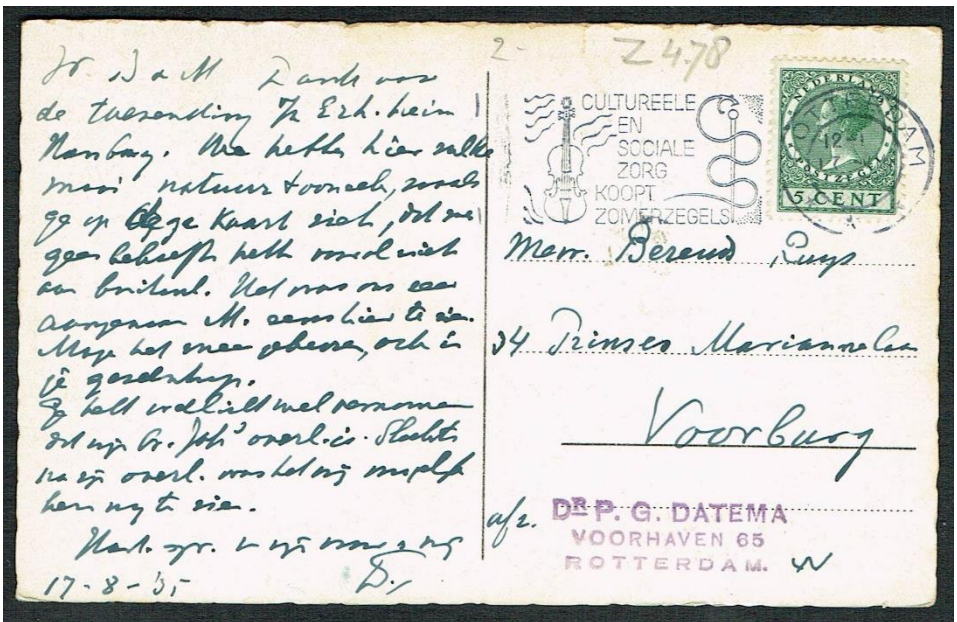 2-
Z 478
CULTUREELE
EN
SOCIALE
ZORG
KOOPT
ZOMERZEGELS
NEDERLAND
POSTZEGEL
5 CENT
ROTTERDAM
12
B & M Dank voor
de toezending
We hebben hier zulke
mooi natuurtooneel, zooals
ge op deze Kaart ziet, dat we
geen behoefte hebb
aan buitenl. Het was ons zeer
aangenaam M. eens hier te zien.
Moge het meer gebeuren, ook in
je gezelschap.
Ge hebt wellicht wel vernomen
dat mijn br. Joh's overl. is. Slechts
na zijn overl. was het mij mogelijk
hem nog te zien.
Hart. gr. v. mijn vrouw & mij
D.
17-8-'35
Mevr. Berend Ruys
34 Prinses Mariannelaan
Voorburg
afz. DR P. G. DATEMA
VOORHAVEN 65
ROTTERDAM. W